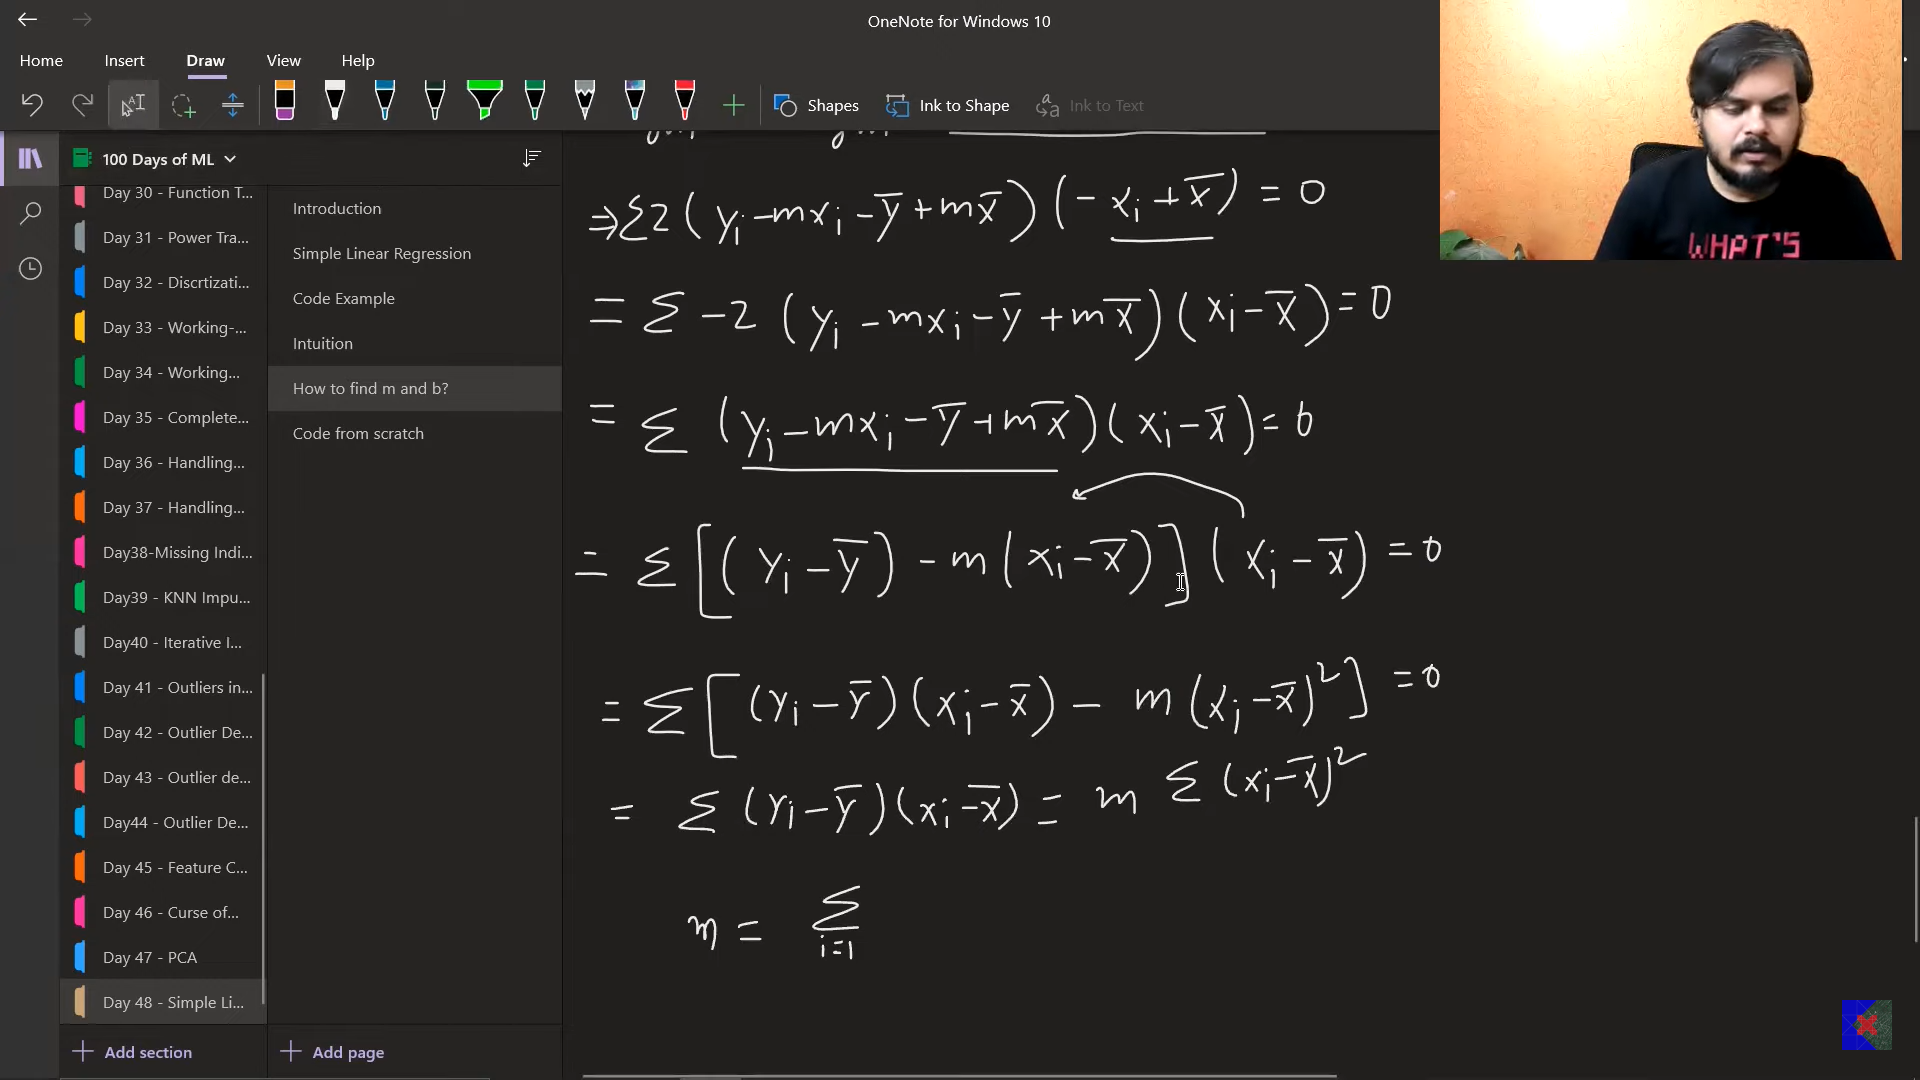 OneNote for Windows 10
Home Insert Draw View Help
Shapes Ink to Shape Ink to Text
100 Days of ML
Day 30 - Function T...
Day 31 - Power Tra...
Day 32 - Discrtizati...
Day 33 - Working-...
Day 34 - Working...
Day 35 - Complete...
Day 36 - Handling...
Day 37 - Handling...
Day38-Missing Indi...
Day39 - KNN Impu...
Day40 - Iterative I...
Day 41 - Outliers in...
Day 42 - Outlier De...
Day 43 - Outlier de...
Day44 - Outlier De...
Day 45 - Feature C...
Day 46 - Curse of...
Day 47 - PCA
Day 48 - Simple Li...
Add section
Introduction
Simple Linear Regression
Code Example
Intuition
How to find m and b?
Code from scratch
Add page
⇒ Σ2 (yᵢ - mxᵢ - ȳ + mx̄) (- xᵢ + x̄) = 0
= Σ -2 (yᵢ - mxᵢ - ȳ + mx̄) (xᵢ - x̄) = 0
= Σ (yᵢ - mxᵢ - ȳ + mx̄) (xᵢ - x̄) = 0
= Σ [(yᵢ - ȳ) - m (xᵢ - x̄)] (xᵢ - x̄) = 0
= Σ [(yᵢ - ȳ) (xᵢ - x̄) - m (xᵢ - x̄)²] = 0
= Σ (yᵢ - ȳ) (xᵢ - x̄) = m Σ (xᵢ - x̄)²
m = Σ
i=1
WHAT'S